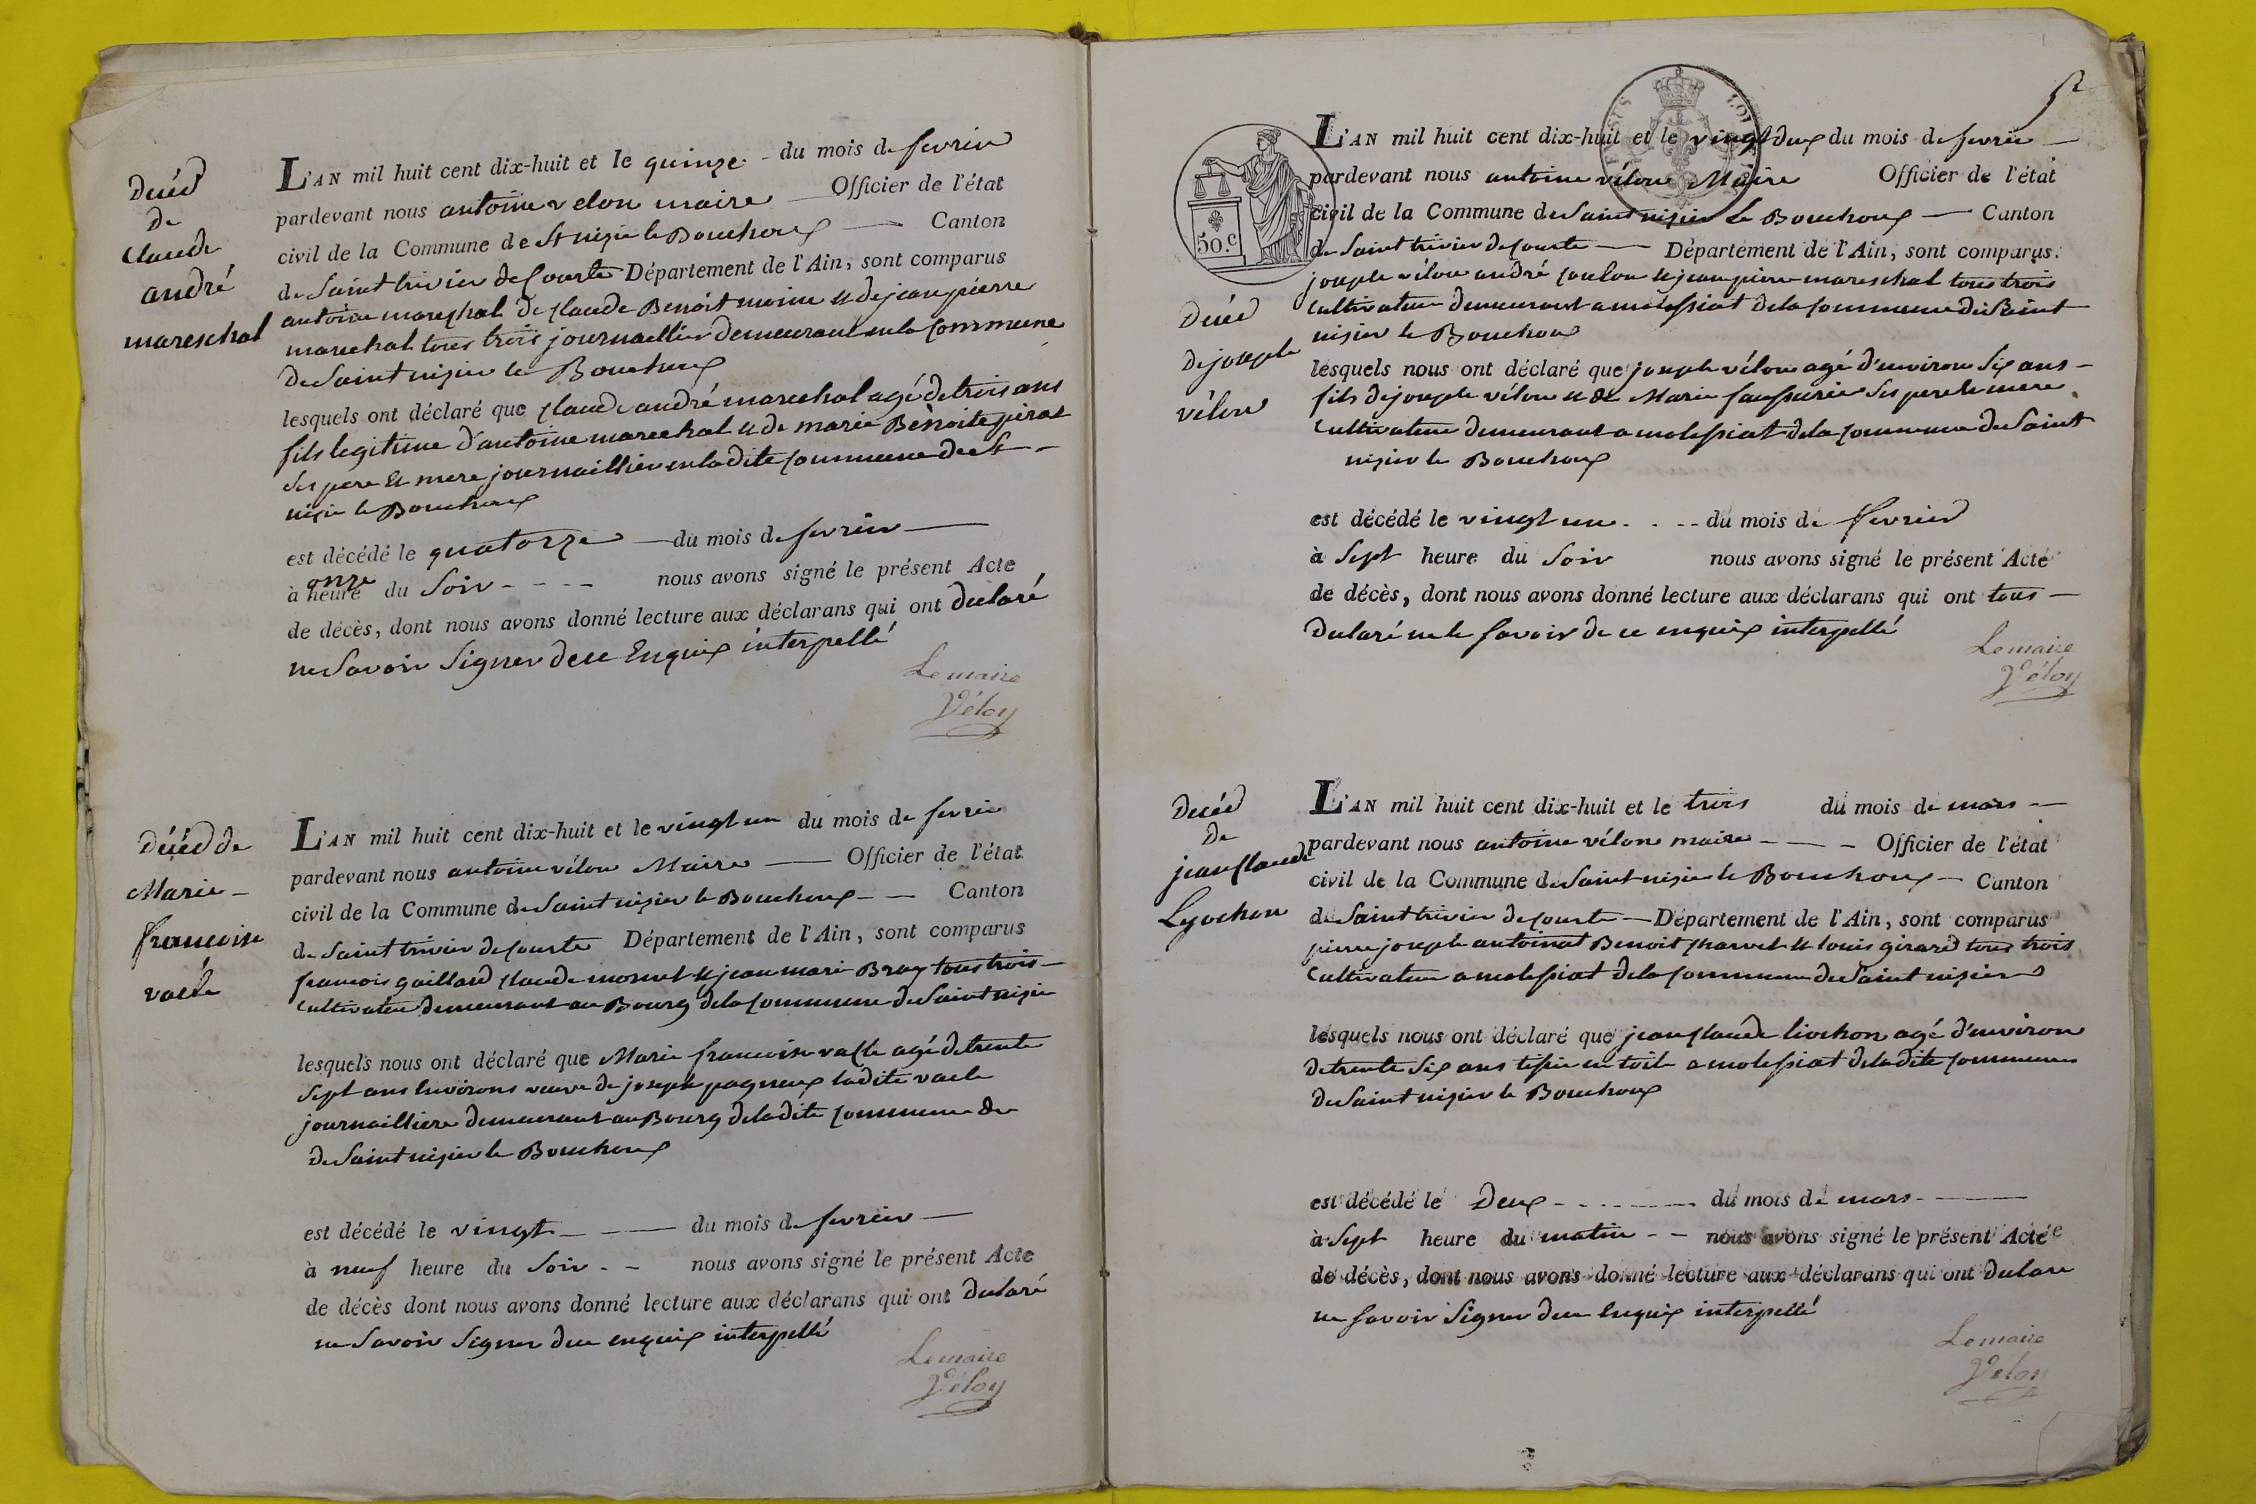 Décéd
de
Claude
andré
mareschal
L'AN mil huit cent dix-huit et le quinze - du mois de fevrier
pardevant nous antoine velon maire — Officier de l'état
civil de la Commune de St nizier le Bouchoux — Canton
de Saint trivier de Courte Département de l'Ain, sont comparus
antoine mareschal de Claude Benoit moine et de jean pierre
marechal tous trois journaillier demeurant en la Commune
de Saint nizier le Bouchoux
lesquels ont déclaré que Claude andré marechal agé de trois ans
fils legitime d'antoine marechal et de marie Bénoite pirat
ses pere et mere journaillier en la dite Commune de St -
nizie le Bouchoux
est décédé le quatorze — du mois de fevrier —
à onze heure du Soir - - - - nous avons signé le présent Acte
de décès, dont nous avons donné lecture aux déclarans qui ont declaré
ne Savoir Signer de ce Enquix interpellé
Le maire
Véloy
Décéd de
Marie -
francoise
vacle
L'AN mil huit cent dix-huit et le vingt un du mois de fevrie
pardevant nous antoine vélon Maire — Officier de l'état
civil de la Commune de Saint nizier le Bouchoux - — Canton
de Saint trivier de Courte Département de l'Ain, sont comparus
francois gaillard Claude et jean marie Bray tous trois -
Cultivateur demeurant au Bourg de la Commune de Saint nizie
lesquels nous ont déclaré que Marie francoise vacle agé de trente
Sept ans Environs veuve de joseph pagneux ladite vacle
journailliere demeurant au Bourg de la dite Commune de
de Saint nizier le Bouchoux
est décédé le vingt - — du mois de fevrier —
à neuf heure du Soir - - nous avons signé le présent Acte
de décès dont nous avons donné lecture aux déclarans qui ont declaré
ne Savoir Signer de ce enquix interpellé
Le maire
Véloy
5
50.c
L'AN mil huit cent dix-huit et le vingt deux du mois de fevrie —
pardevant nous antoine vélon Maire Officier de l'état
civil de la Commune de Saint nizier Le Bouchoux — Canton
de Saint trivier de Courte — Département de l'Ain, sont comparus
Décéd
de joseph
vélon
joseph vélon andré Coulon et jean pierre mareschal tous trois
Cultivateur demeurant a molessiat de la Commune de Saint
nizier le Bouchoux
lesquels nous ont déclaré que joseph vélon agé d'environ Six ans -
fils de joseph vélon et de Marie ses pere et mere
Cultivateur demeurant a molessiat de la Commune de Saint
nizier le Bouchoux
est décédé le vingt un - - - - du mois de fevrier
à Sept heure du Soir nous avons signé le présent Acte
de décès, dont nous avons donné lecture aux déclarans qui ont tous —
declaré ne le savoir de ce enquix interpellé
Le maire
Véloy
Décéd
de
jean Claude
Lyochon
L'AN mil huit cent dix-huit et le trois du mois de mars —
pardevant nous antoine vélon maire - — - Officier de l'état
civil de la Commune de Saint nizier le Bouchoux — Canton
de Saint trivier de Courte — Département de l'Ain, sont comparus
pierre joseph antoinat Benoit Charvet et louis girard tous trois
Cultivateur a molessiat de la Commune de Saint nizier
lesquels nous ont déclaré que jean Claude liochon agé d'environ
de trente Six ans tisier en toile a molessiat de la dite Commune
de Saint nizier le Bouchoux
est décédé le Deux - - - — du mois de mars - —
à Sept heure du matin - - nous avons signé le présent Acte
de décès, dont nous avons donné lecture aux déclarans qui ont declare
ne Savoir Signer de ce Enquix interpellé
Le maire
Véloy